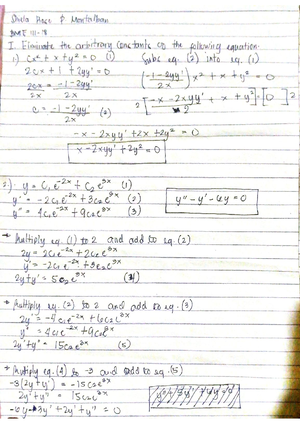 I. Eliminate the arbitrary constants of the following equation.
1) Cx² + x + y² = 0 (1)
2Cx + 1 + 2yy' = 0
2Cx = -1 - 2yy'
2x 2x
C = -1 - 2yy' (2)
2x
Subs eq. (2) into eq. (1)
(-1 - 2yy' / 2x) x² + x + y² = 0
2 [ -x - 2xyy' / 2 + x + y² ] = [0] 2
-x - 2xyy' + 2x + 2y² = 0
x - 2xyy' + 2y² = 0
2) y = C₁e^-2x + C₂e^3x (1)
y' = -2C₁e^-2x + 3C₂e^3x (2)
y'' = 4C₁e^-2x + 9C₂e^3x (3)
y'' - y' - 6y = 0
Multiply eq. (1) to 2 and add to eq. (2)
2y = 2C₁e^-2x + 2C₂e^3x
y' = -2C₁e^-2x + 3C₂e^3x
2y + y' = 5C₂e^3x (4)
Multiply eq. (2) to 2 and add to eq. (3)
2y' = -4C₁e^-2x + 6C₂e^3x
y'' = 4C₁e^-2x + 9C₂e^3x
2y' + y'' = 15C₂e^3x (5)
Multiply eq. (4) to -3 and add to eq. (5)
-3(2y + y') = -15C₂e^3x
2y' + y'' = 15C₂e^3x
-6y - 3y' + 2y' + y'' = 0